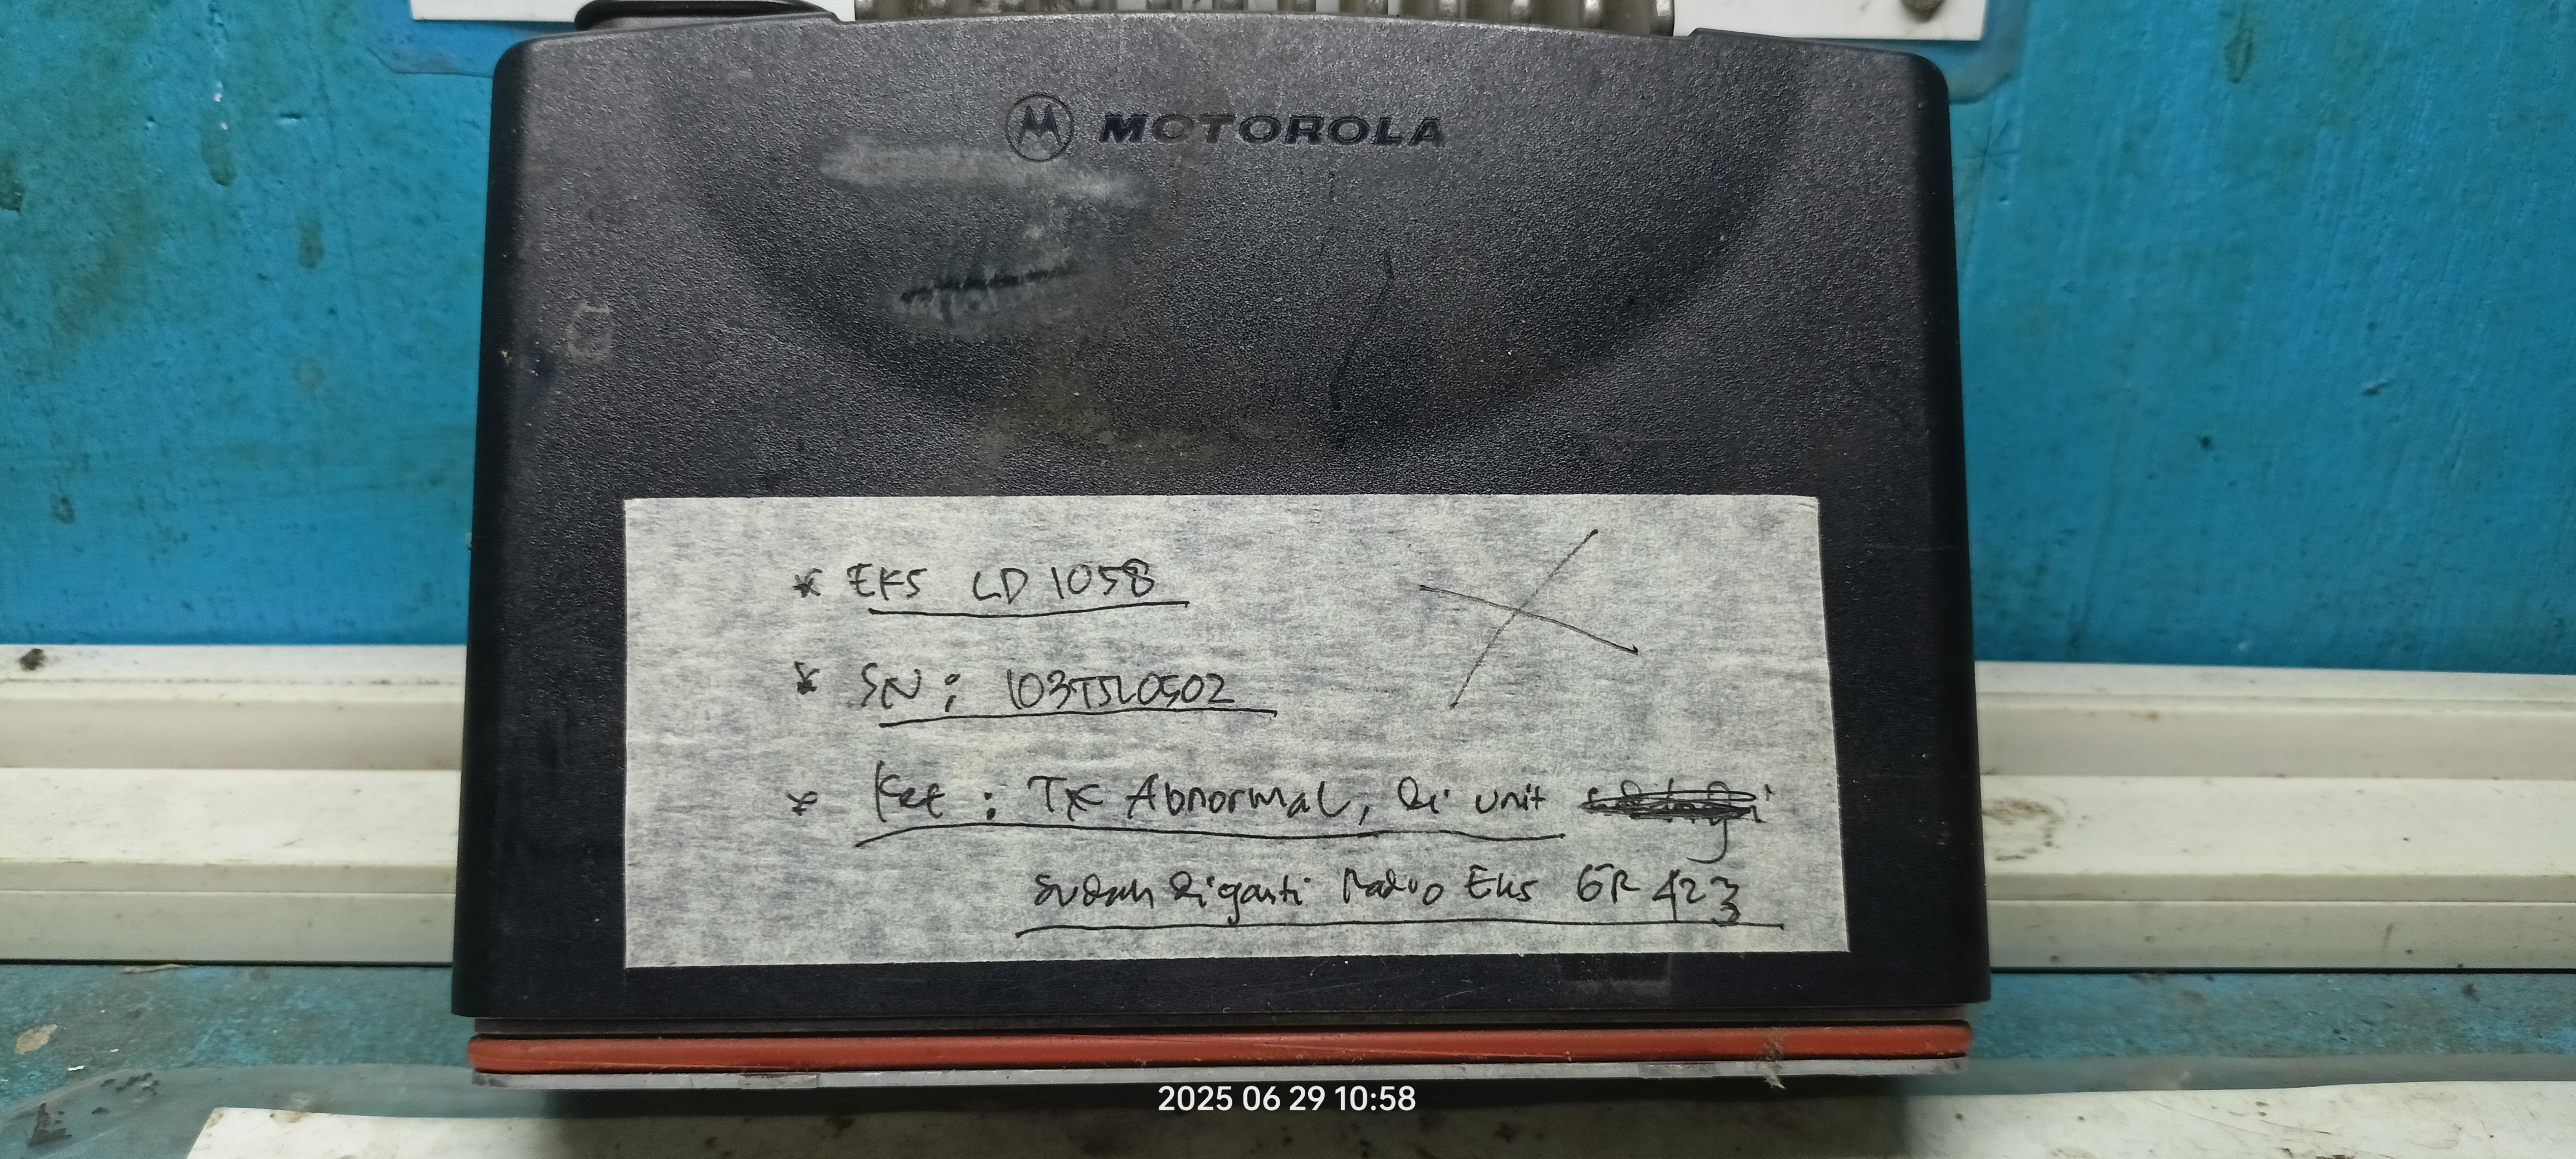 MOTOROLA
* EKS LD 1058
* SN : 103TSL0502
* Ket : TX Abnormal, di unit
sudah diganti Radio Eks GR 423
2025 06 29 10:58